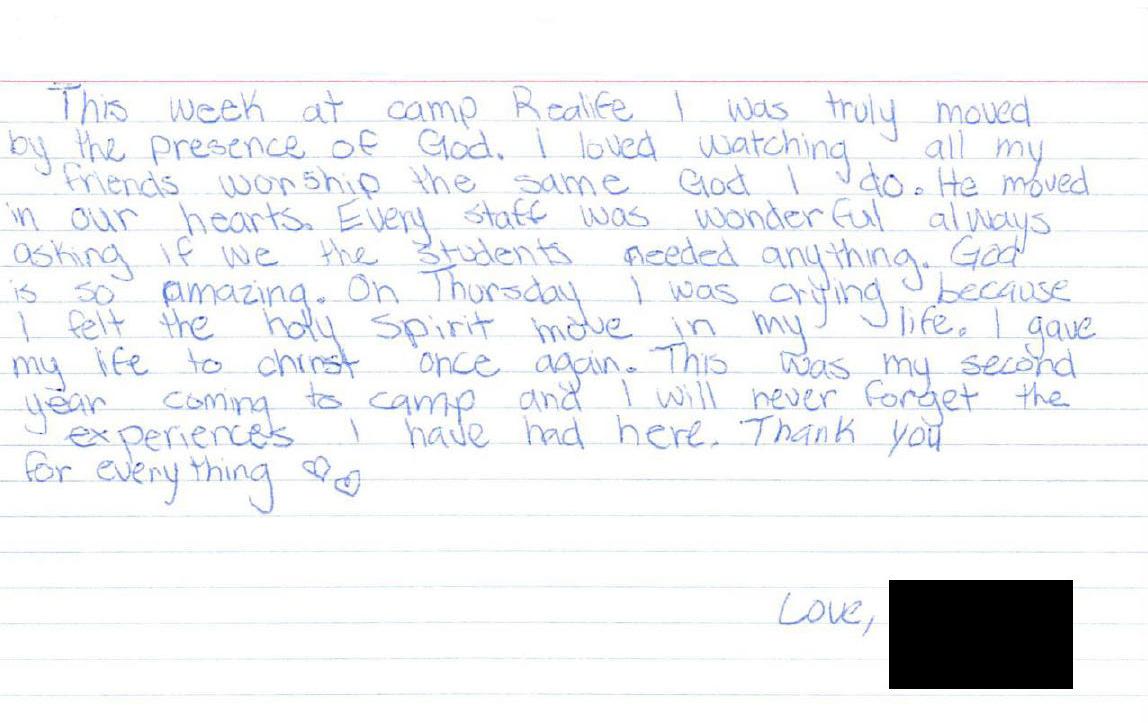 This week at camp Realife I was truly moved
by the presence of God. I loved watching all my
friends worship the same God I do. He moved
in our hearts. Every staff was wonderful always
asking if we the students needed anything. God
is so amazing. On Thursday I was crying because
I felt the holy spirit move in my life. I gave
my life to christ once again. This was my second
year coming to camp and I will never forget the
experiences I have had here. Thank you
for everything
Love,